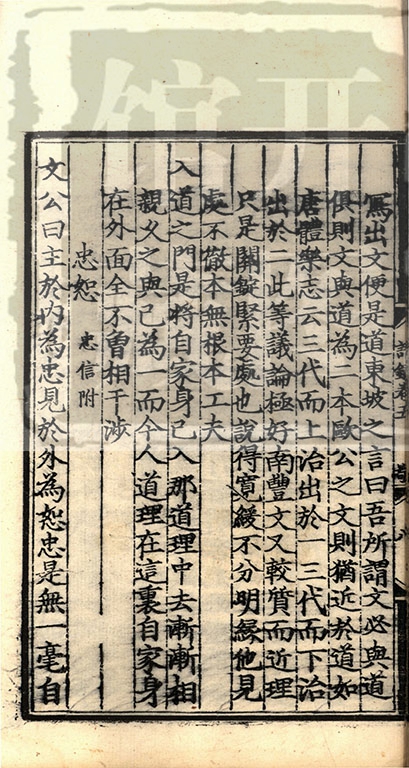 寫出文便是道東坡之言曰吾所謂文必與道
俱則文與道為二本歐公之文則猶近於道如
唐體樂志云三代而上治出於一三代而下治
出於二此等議論極好南豐文又較質而近理
只是關鍵緊要處也說得寬緩不分明緣他見
處不徹本無根本工夫
入道之門是將自家身己入那道理中去漸漸相
親久之與己為一而今人道理在這裏自家身
在外面全不曽相干涉
忠恕 忠信附
文公曰主於內為忠見於外為恕忠是無一毫自